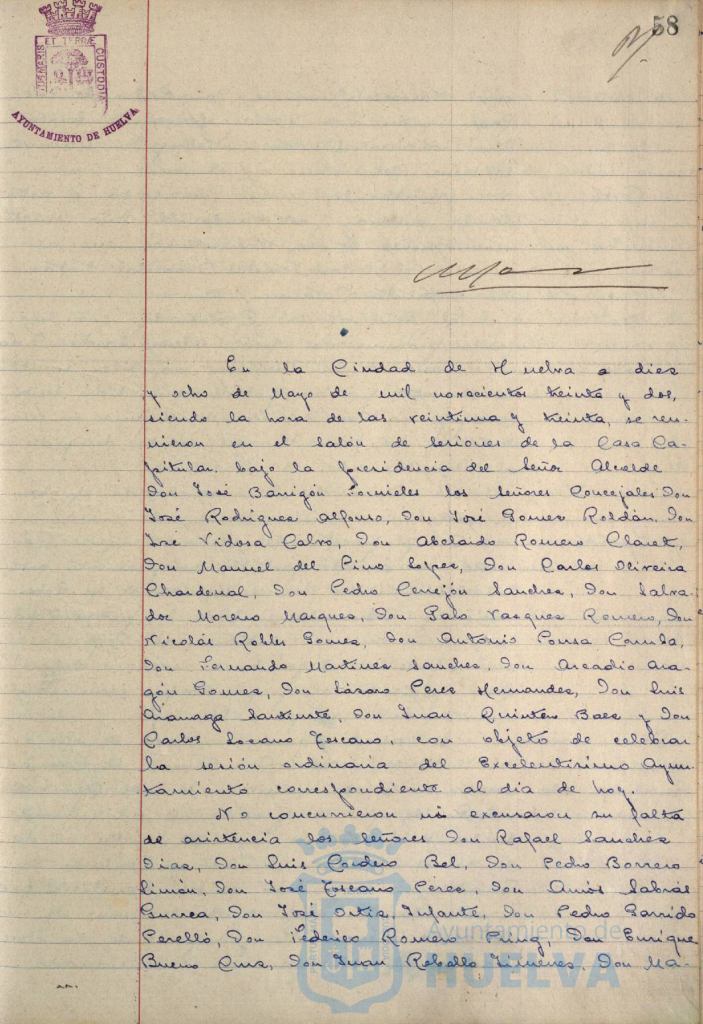 58
PORTUS MARIS ET TERRÆ CUSTODIA
AYUNTAMIENTO DE HUELVA
En la Ciudad de Huelva a diez
y ocho de Mayo de mil novecientos treinta y dos,
siendo la hora de las veintiuna y treinta, se reu-
nieron en el salón de sesiones de la Casa Ca-
pitular, bajo la presidencia del Señor Alcalde
Don José Barrigón Fornieles los señores Concejales Don
José Rodriguez Alfonso, Don José Gomez Roldán, Don
José Vidosa Calvo, Don Abelardo Romero Claret,
Don Manuel del Pino Lopez, Don Carlos Oliveira
Chardenal, Don Pedro Cerrejón Sanchez, Don Salva-
dor Moreno Marquez, Don Galo Vazquez Romero, Don
Nicolás Robles Gomez, Don Antonio Ponsa
Don Fernando Martinez Sanchez, Don Arcadio Ara-
gón Gomez, Don Lázaro Perez Hernandez, Don Luis
Don Juan Quintero Baez y Don
Carlos Lozano Toscano, con objeto de celebrar
la sesión ordinaria del Excelentisimo Ayun-
tamiento correspondiente al dia de hoy.
No concurrieron ni excusaron su falta
de asistencia los señores Don Rafael Sanchez
Diaz, Don Luis Cordero Bel, Don Pedro Borrero
Limón, Don José Toscano Perez, Don Amós Sabrás
Gurrea, Don José Ortiz Infante, Don Pedro Garrido
Perelló, Don Federico Romero Pring, Don Enrique
Bueno Cruz, Don Juan Rebollo Jimenez, Don Ma-
Ayuntamiento de
HUELVA